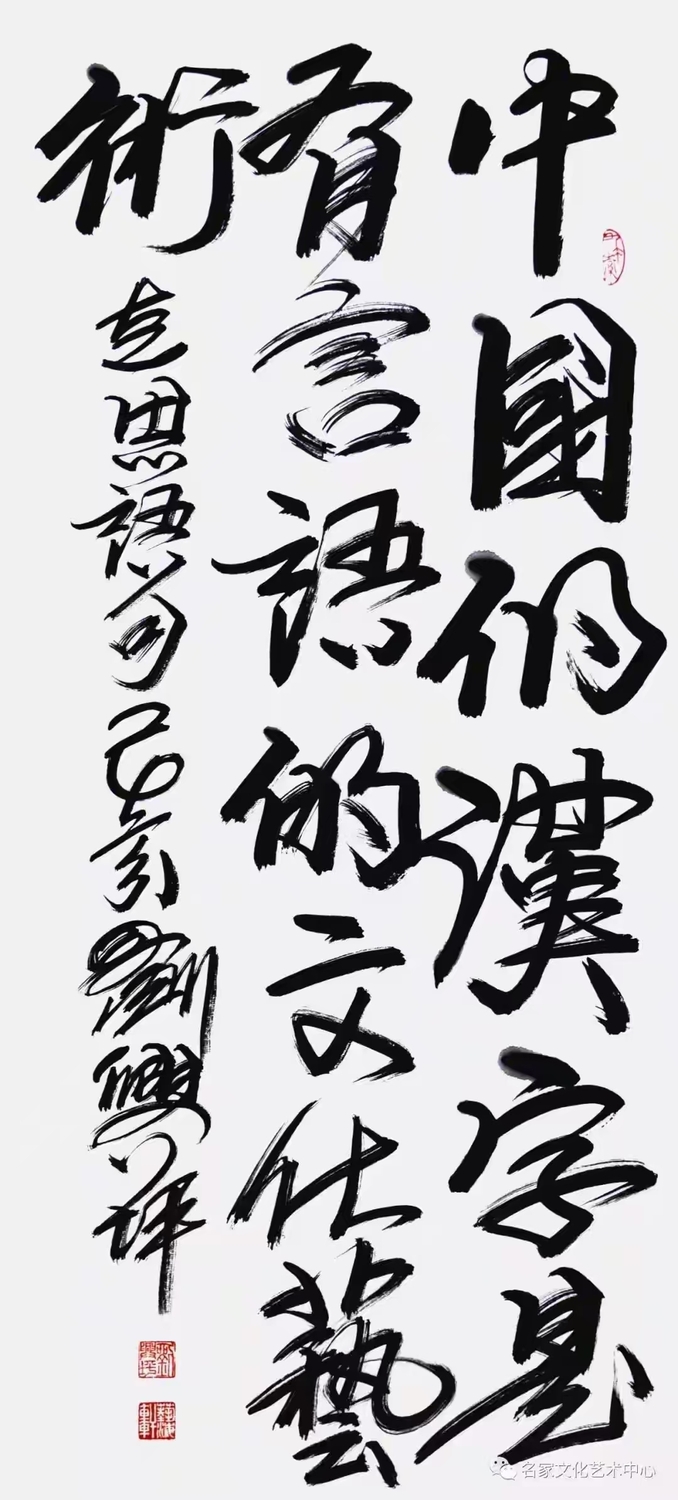 中國的漢字是
有言語的文化藝
術
思語句己亥劉興祥
名家文化艺术中心